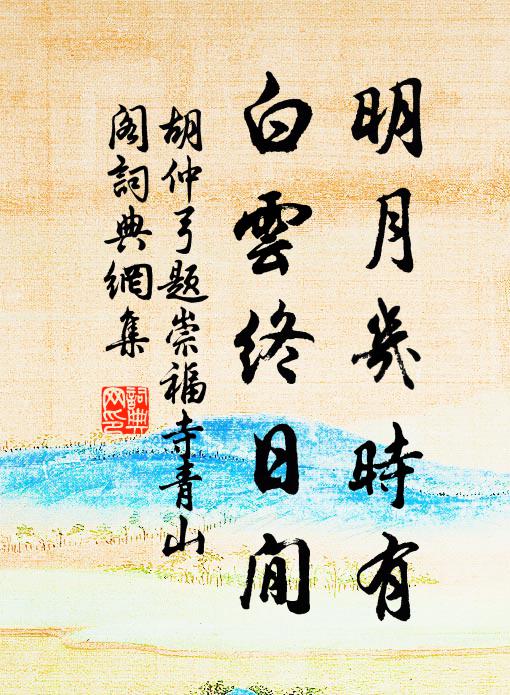 明月幾時有
白雲終日閒
胡仲弓題崇福寺青山
閣詞典網集
詞典
网印